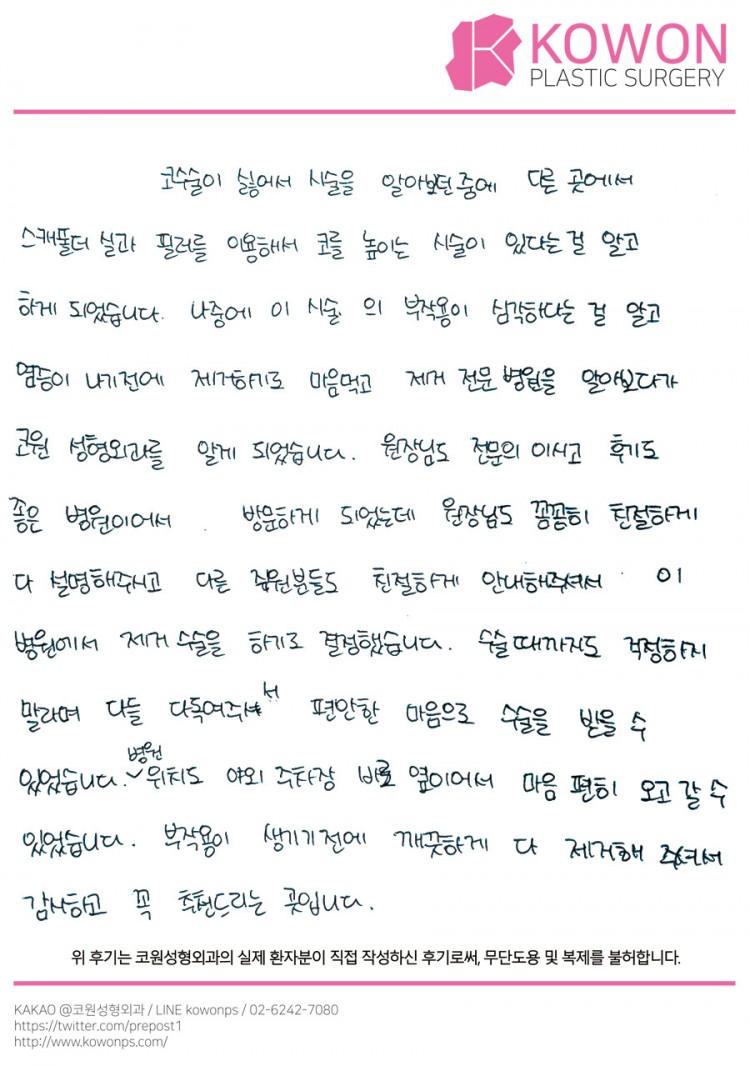 KOWON
PLASTIC SURGERY
코수술이 싫어서 시술을 알아보던중에 다른 곳에서
스캐폴더 실과 필러를 이용해서 코를 높이는 시술이 있다는걸 알고
하게 되었습니다. 나중에 이 시술 의 부작용이 심각하다는 걸 알고
염증이 나기전에 제거하기로 마음먹고 제거 전문병원을 알아보다가
코원 성형외과를 알게 되었습니다. 원장님도 전문의이시고 후기도
좋은 병원이어서 방문하게 되었는데 원장님도 꼼꼼히 친절하게
다 설명해주시고 다른 직원분들도 친절하게 안내해주셔서 이
병원에서 제거수술을 하기로 결정했습니다. 수술때까지도 걱정하지
말라며 다들 다독여주셔서 편안한 마음으로 수술을 받을 수
있었습니다. 병원 위치도 야외 주차장 바로 옆이어서 마음 편히 오고갈 수
있었습니다. 부작용이 생기기전에 깨끗하게 다 제거해 주셔서
감사하고 꼭 추천드리는 곳입니다.
위 후기는 코원성형외과의 실제 환자분이 직접 작성하신 후기로써, 무단도용 및 복제를 불허합니다.
KAKAO @코원성형외과 / LINE kowonps / 02-6242-7080
https://twitter.com/prepost1
http://www.kowonps.com/